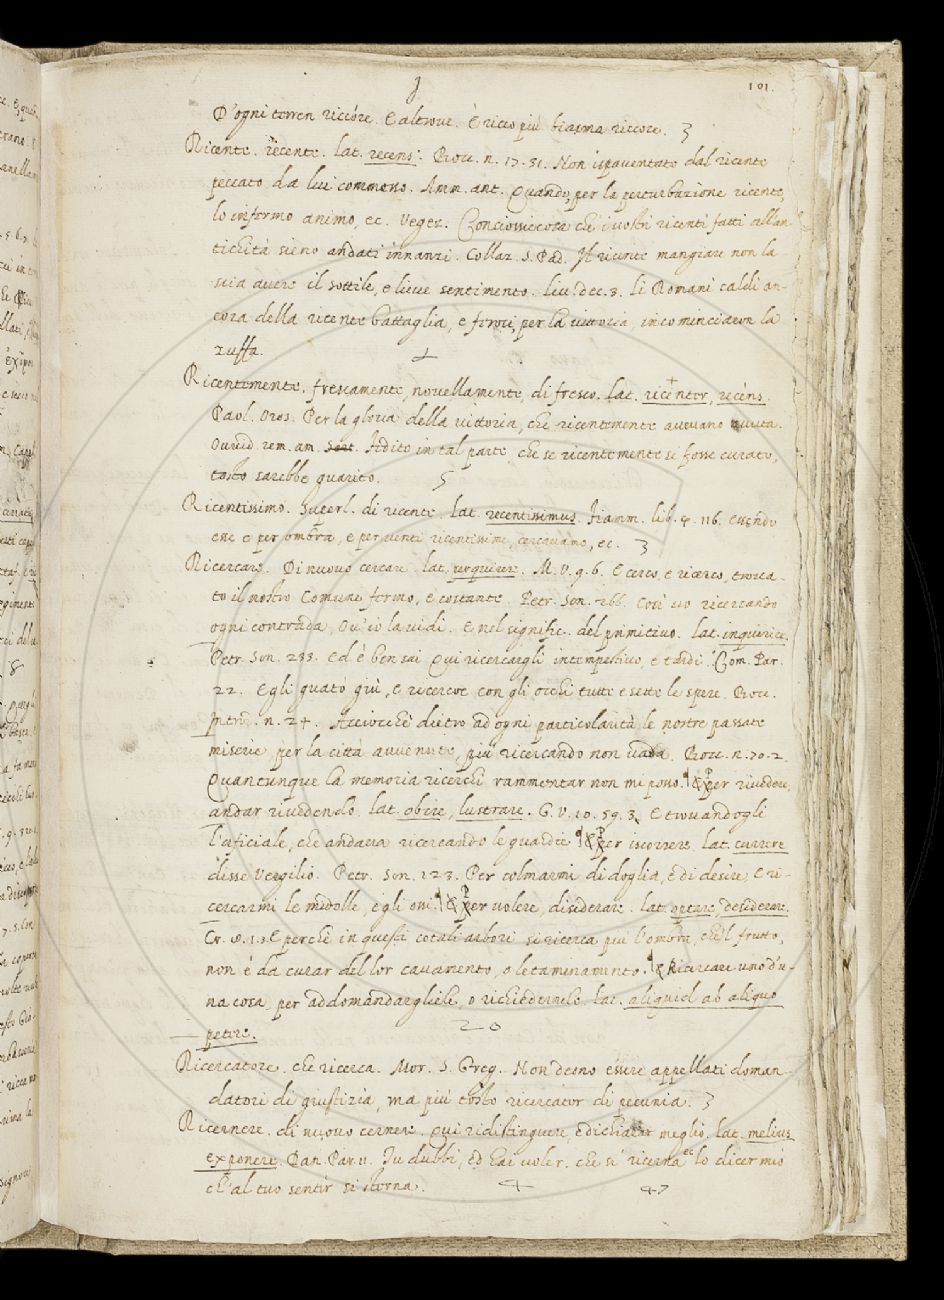 J
101.
D'ogni terren riccóre. E altroue. È reo più biasma riccore. 3
Ricente. récente. lat. recens. Bocc. n. 17. 31. Non ispauentato dal ricente
peccato da lui commesso. Amm. ant. Quando, per la perturbazione ricente,
lo infermo animo, ec. Vegez. Conciossiecosa che i uostri ricenti fatti all'an-
tichità sieno andati innanzi. Collaz. S. Pad. Il ricente mangiare non la-
scia auere il sottile, e lieue sentimento. Liu. dec. 3. Li Romani caldi an-
cora della ricente battaglia, e feroci per la uittoria, incominciaron la
zuffa.
Ricentemente. frescamente, nouellamente, di fresco. lat. recenter, recéns.
Paol. Oros. Per la gloria della uittoria, che ricentemente aueuano auuta.
Ouuid. rem. am. Fedito in tal parte, che se ricentemente si fosse curato,
tosto sarebbe guarito. 5
Ricentissimo. Superl. di ricente. Lat. recentissimus. Fiamm. lib. 4. 116. Essendo
esse e per ombra, e per uenti ricentissime, cercauamo, ec. 3
Ricercare. Di nuouo cercare. lat. requirere. M. V. 9. 6. E cerco, e ricerco, troua-
to il nostro Comune fermo, e costante. Petr. Son. 266. Così uo ricercando
ogni contrada, Ou'io la uidi. E nel signific. del primitiuo. lat. inquirere.
Petr. Son. 233. Ed è ben sai Qui ricercargli intempestiuo, e tardi. Com. Par.
22. Egli guatò giù, e ricercoe con gli occhi tutte e sette le spere. Bocc.
Introd. n. 24. Acciocchè dietro ad ogni particolarità le nostre passate
miserie per la città auuenute, più ricercando non uada. Bocc. n. 70. 2.
Quantunque la memoria ricerchi rammentar non mi posso. ¶ Per riuedere,
andar riuedendo. lat. obire, lustrare. G. V. 10. 59. 3. E trouandogli
l'uficiale, che andaua ricercando le guardie ¶ Per iscorrere. lat. currere
disse Vergilio. Petr. Son. 123. Per colmarmi di doglia, e di desire, E ri-
cercarmi le midolle, e gli ossi. ¶ Per uolere, disiderare. lat. optare, desiderare.
Cr. 2. 1. 3. E perchè in questi cotali arbori si ricerca più l'ombra, che'l frutto,
non è da curar del lor cauamento, o letaminamento. ¶ Ricercare uno d'u-
na cosa, per addomandargliele, o richiedernelo. lat. aliquid ab aliquo
petere. 20
Ricercatore. che ricerca. Mor. S. Greg. Non deono essere appellati doman-
datori di giustizia, ma più tosto ricercator di pecunia. 3
Ricernere. di nuouo cernere. Qui ridistinguere, e dichiarar meglio. lat. melius
exponere. Dan. Par. 11. Tu dubbi, ed hai uoler, che si ricerna ec lo dicer mio
ch'al tuo sentir si sterna. 4 47